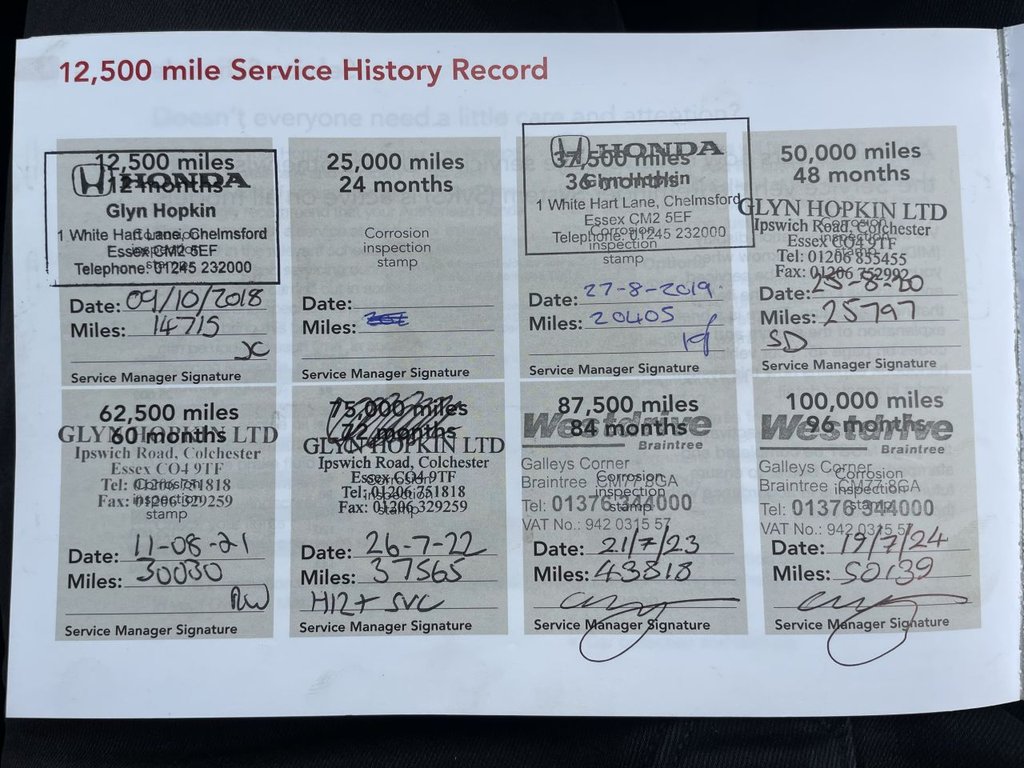 12,500 mile Service History Record
Doesn't everyone need a little care and attention?
12,500 miles
12 months
HONDA
Glyn Hopkin
1 White Hart Lane, Chelmsford
Essex CM2 5EF
Telephone: 01245 232000
Corrosion
inspection
stamp
Date: 09/10/2018
Miles: 14715
JC
Service Manager Signature
25,000 miles
24 months
Corrosion
inspection
stamp
Date:
Miles:
Service Manager Signature
37,500 miles
36 months
HONDA
Glyn Hopkin
1 White Hart Lane, Chelmsford
Essex CM2 5EF
Telephone: 01245 232000
Corrosion
inspection
stamp
Date: 27-8-2019
Miles: 20405
Service Manager Signature
50,000 miles
48 months
GLYN HOPKIN LTD
Ipswich Road, Colchester
Essex CO4 9TF
Tel: 01206 855455
Fax: 01206 752992
Corrosion
inspection
stamp
Date: 25-8-20
Miles: 25797
SD
Service Manager Signature
62,500 miles
60 months
GLYN HOPKIN LTD
Ipswich Road, Colchester
Essex CO4 9TF
Tel: 01206 751818
Fax: 01206 329259
Corrosion
inspection
stamp
Date: 11-08-21
Miles: 30030
RW
Service Manager Signature
75,000 miles
72 months
GLYN HOPKIN LTD
Ipswich Road, Colchester
Essex CO4 9TF
Tel: 01206 751818
Fax: 01206 329259
Corrosion
inspection
stamp
Date: 26-7-22
Miles: 37565
H12+ SVC
Service Manager Signature
87,500 miles
84 months
Westdrive
Braintree
Galleys Corner
Braintree CM77 8GA
Tel: 01376 344000
VAT No.: 942 0315 57
Corrosion
inspection
stamp
Date: 21/7/23
Miles: 43818
Service Manager Signature
100,000 miles
96 months
Westdrive
Braintree
Galleys Corner
Braintree CM77 8GA
Tel: 01376 344000
VAT No.: 942 0315 57
Corrosion
inspection
stamp
Date: 19/7/24
Miles: 50139
Service Manager Signature